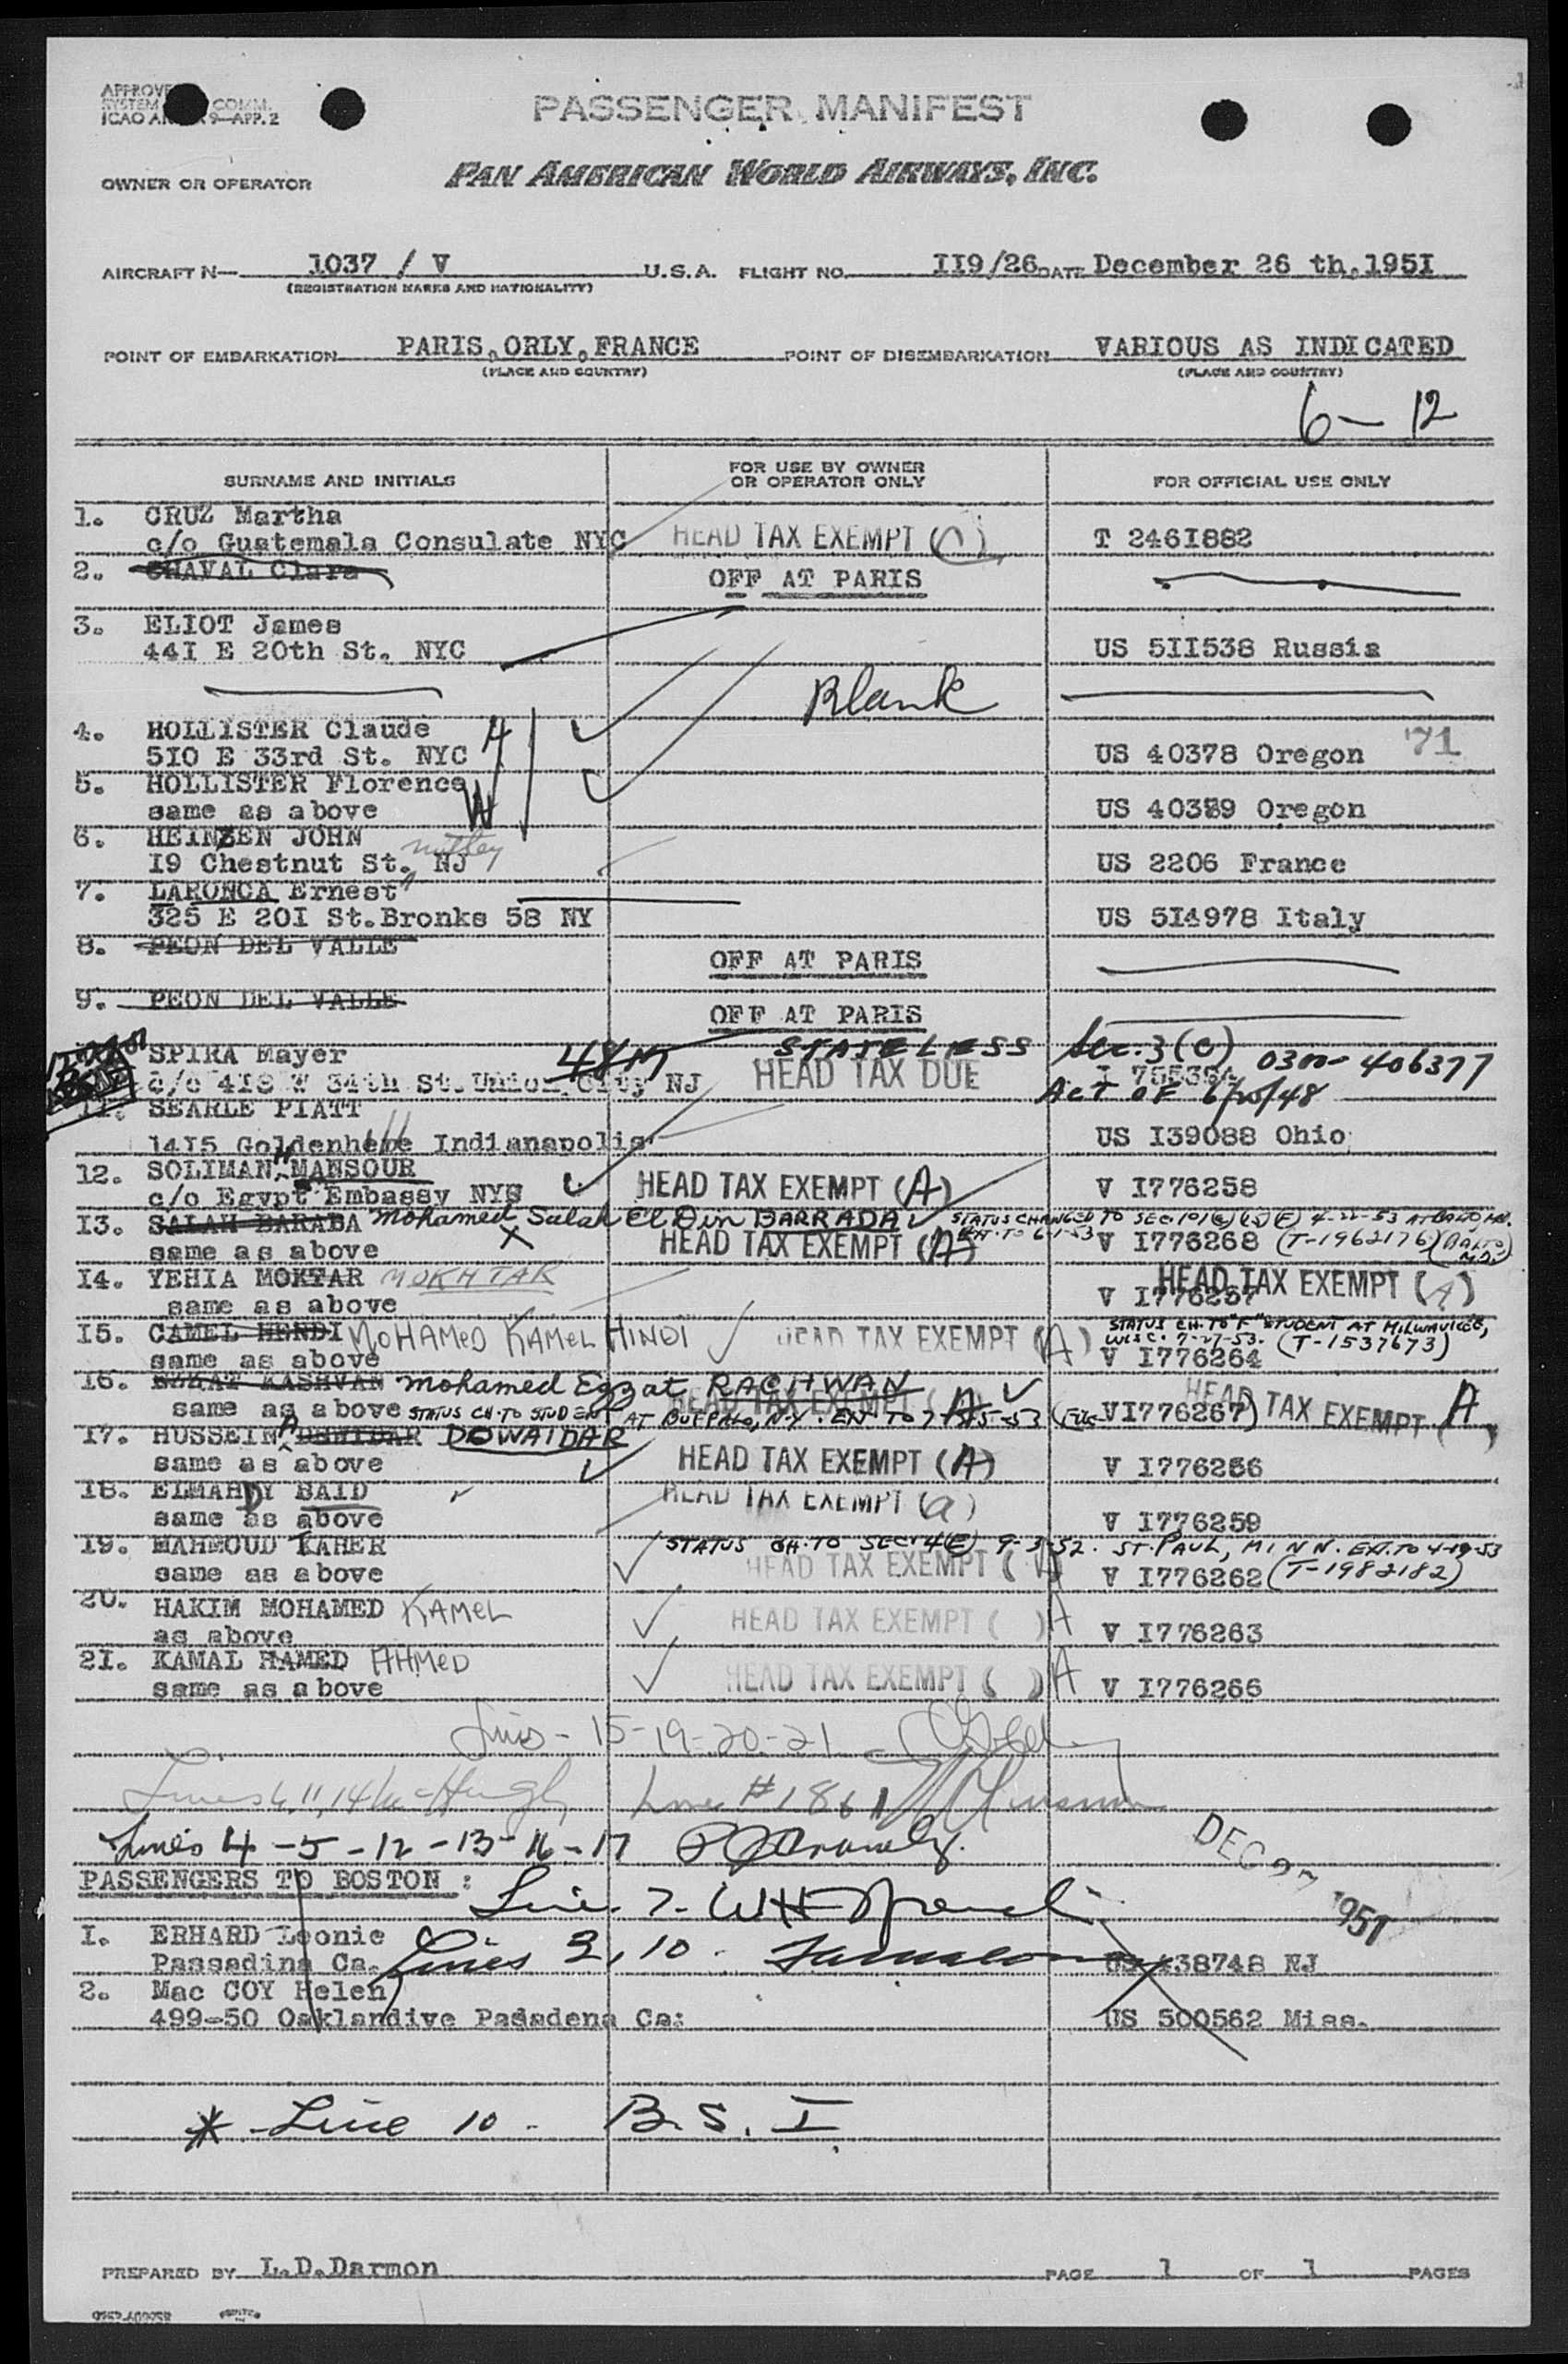 APPROVE
SYSTEM COMM.
ICAO A 9-APP.2
PASSENGER MANIFEST
PAN AMERICAN WORLD AIRWAYS, INC.
OWNER OR OPERATOR
AIRCRAFT N— 1037 / V U.S.A. FLIGHT NO. II9/26 DATE December 26 th.195I
(REGISTRATION MARKS AND NATIONALITY)
POINT OF EMBARKATION PARIS,ORLY,FRANCE POINT OF DISEMBARKATION VARIOUS AS INDICATED
(PLACE AND COUNTRY) (PLACE AND COUNTRY)
6— 12
SURNAME AND INITIALS FOR USE BY OWNER OR OPERATOR ONLY FOR OFFICIAL USE ONLY
1. CRUZ Martha
c/o Guatemala Consulate NYC HEAD TAX EXEMPT (C) T 246I882
2. CHAVAL Clara OFF AT PARIS
3. ELIOT James
44I E 20th St. NYC US 5II538 Russia
Blank
4. HOLLISTER Claude H
5I0 E 33rd St. NYC US 40378 Oregon 71
5. HOLLISTER Florence W
same as above US 40379 Oregon
6. HEINZEN JOHN nutley
I9 Chestnut St. NJ US 2206 France
7. LARONCA Ernest
325 E 20I St.Bronks 58 NY US 5I4978 Italy
8. PEON DEL VALLE OFF AT PARIS
9. PEON DEL VALLE OFF AT PARIS
SPIRA Mayer 48M STATELESS Sec. 3 (c) 0300-406377
c/o 4I8 W 34th St.Union City NJ HEAD TAX DUE Act of 6/25/48
11. SEARLE PIATT
14I5 Goldenhere Indianapolis US I39088 Ohio
12. SOLIMAN H MANSOUR HEAD TAX EXEMPT (A)
c/o Egypt Embassy NYC V I776258
I3. SALAH BARABA Mohamed Salah El Din BARRADA STATUS CHANGED TO SEC. 101(a)(15)(F) 4-22-53 AT BALTO, MD.
same as above X HEAD TAX EXEMPT (A) EXT. TO 6-1-53 V I776268 (T-1962176) (BALTO MD.)
I4. YEHIA MOKTAR MOKHTAR HEAD TAX EXEMPT (A)
same as above V I776257
I5. CAMEL HENDI MOHAMED KAMEL HINDI HEAD TAX EXEMPT (A) STATUS CH. TO "F" STUDENT AT MILWAUKEE,
WISC. 7-27-53. (T-1537673)
same as above V I776264
I6. EZZAT RASHVAN Mohamed Ezzat RAGHWAN HEAD TAX EXEMPT (A) HEAD TAX EXEMPT A
same as above STATUS CH. TO STUDENT AT BUFFALO, N.Y. V I776267
I7. HUSSEIN A DEWIDAR DOWAIDAR
same as above HEAD TAX EXEMPT (A) V I776256
I8. ELMAHDY BAID HEAD TAX EXEMPT (a)
same as above V I776259
I9. MAHMOUD TAHER STATUS CH. TO SEC. 4(E) 9-3-52. ST. PAUL, MINN. EXT. TO 4-19-53
same as above HEAD TAX EXEMPT ( ) A V I776262 (T-1982182)
20. HAKIM MOHAMED KAMEL HEAD TAX EXEMPT ( ) A
as above V I776263
2I. KAMAL HAMED AHMED
same as above HEAD TAX EXEMPT ( ) A V I776266
Lines - 15-19-20-21
Lines 6, 11, 14 McHugh Line # 18
Lines 4 -5 -12 -13 -16 -17
DEC 27 1951
PASSENGERS TO BOSTON :
Line 7-
I. ERHARD Leonie Lines 3, 10 -
Passadina Ca. US 438748 NJ
2. Mac COY Helen
499-50 Oaklandive Pasadena Ca: US 500562 Miss.
* Line 10 - B. S. I.
PREPARED BY L.D.Darmon PAGE 1 OF 1 PAGES